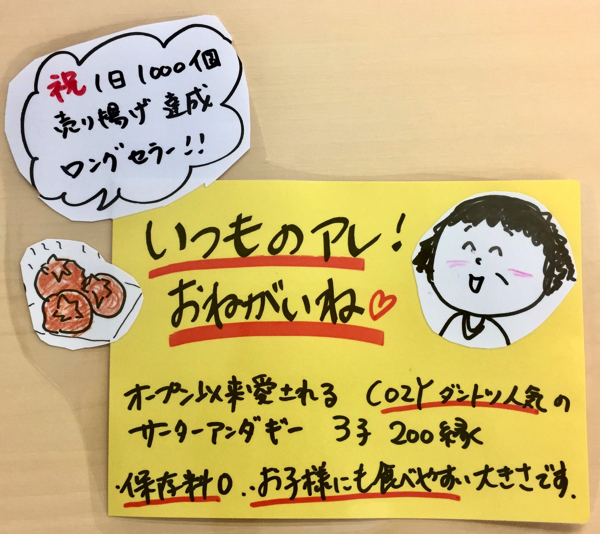 祝 1日1000個
売り揚げ 達成
ロングセラー!!
いつものアレ!
おねがいね♡
オープン以来愛される COZYダントツ人気の
サーターアンダギー 3子 200縁
・保存料0.. お子様にも食べやすい大きさです.